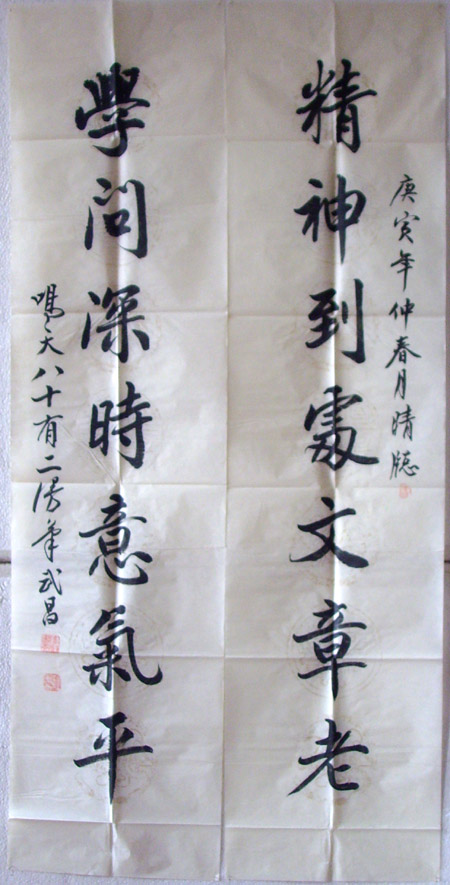 庚寅年仲春月晴牕
精神到處文章老
學問深時意氣平
八十有二漫筆武昌